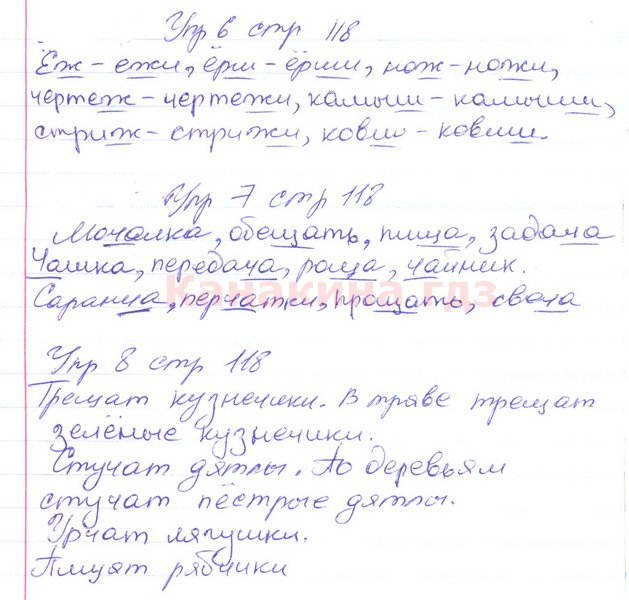 Упр 6 стр 118
Ёж - ежи, ёрш - ёрши, нож - ножи,
чертеж - чертежи, камыш - камыши,
стриж - стрижи, ковш - ковши.
Упр 7 стр 118
Мочалка, обещать, пища, задача
Чашка, передача, роща, чайник.
Саранча, перчатки, прощать, свеча
Канакина гдз
Упр 8 стр 118
Трещат кузнечики. В траве трещат
зелёные кузнечики.
Стучат дятлы. По деревьям
стучат пёстрые дятлы.
Урчат лягушки.
Пищат рябчики